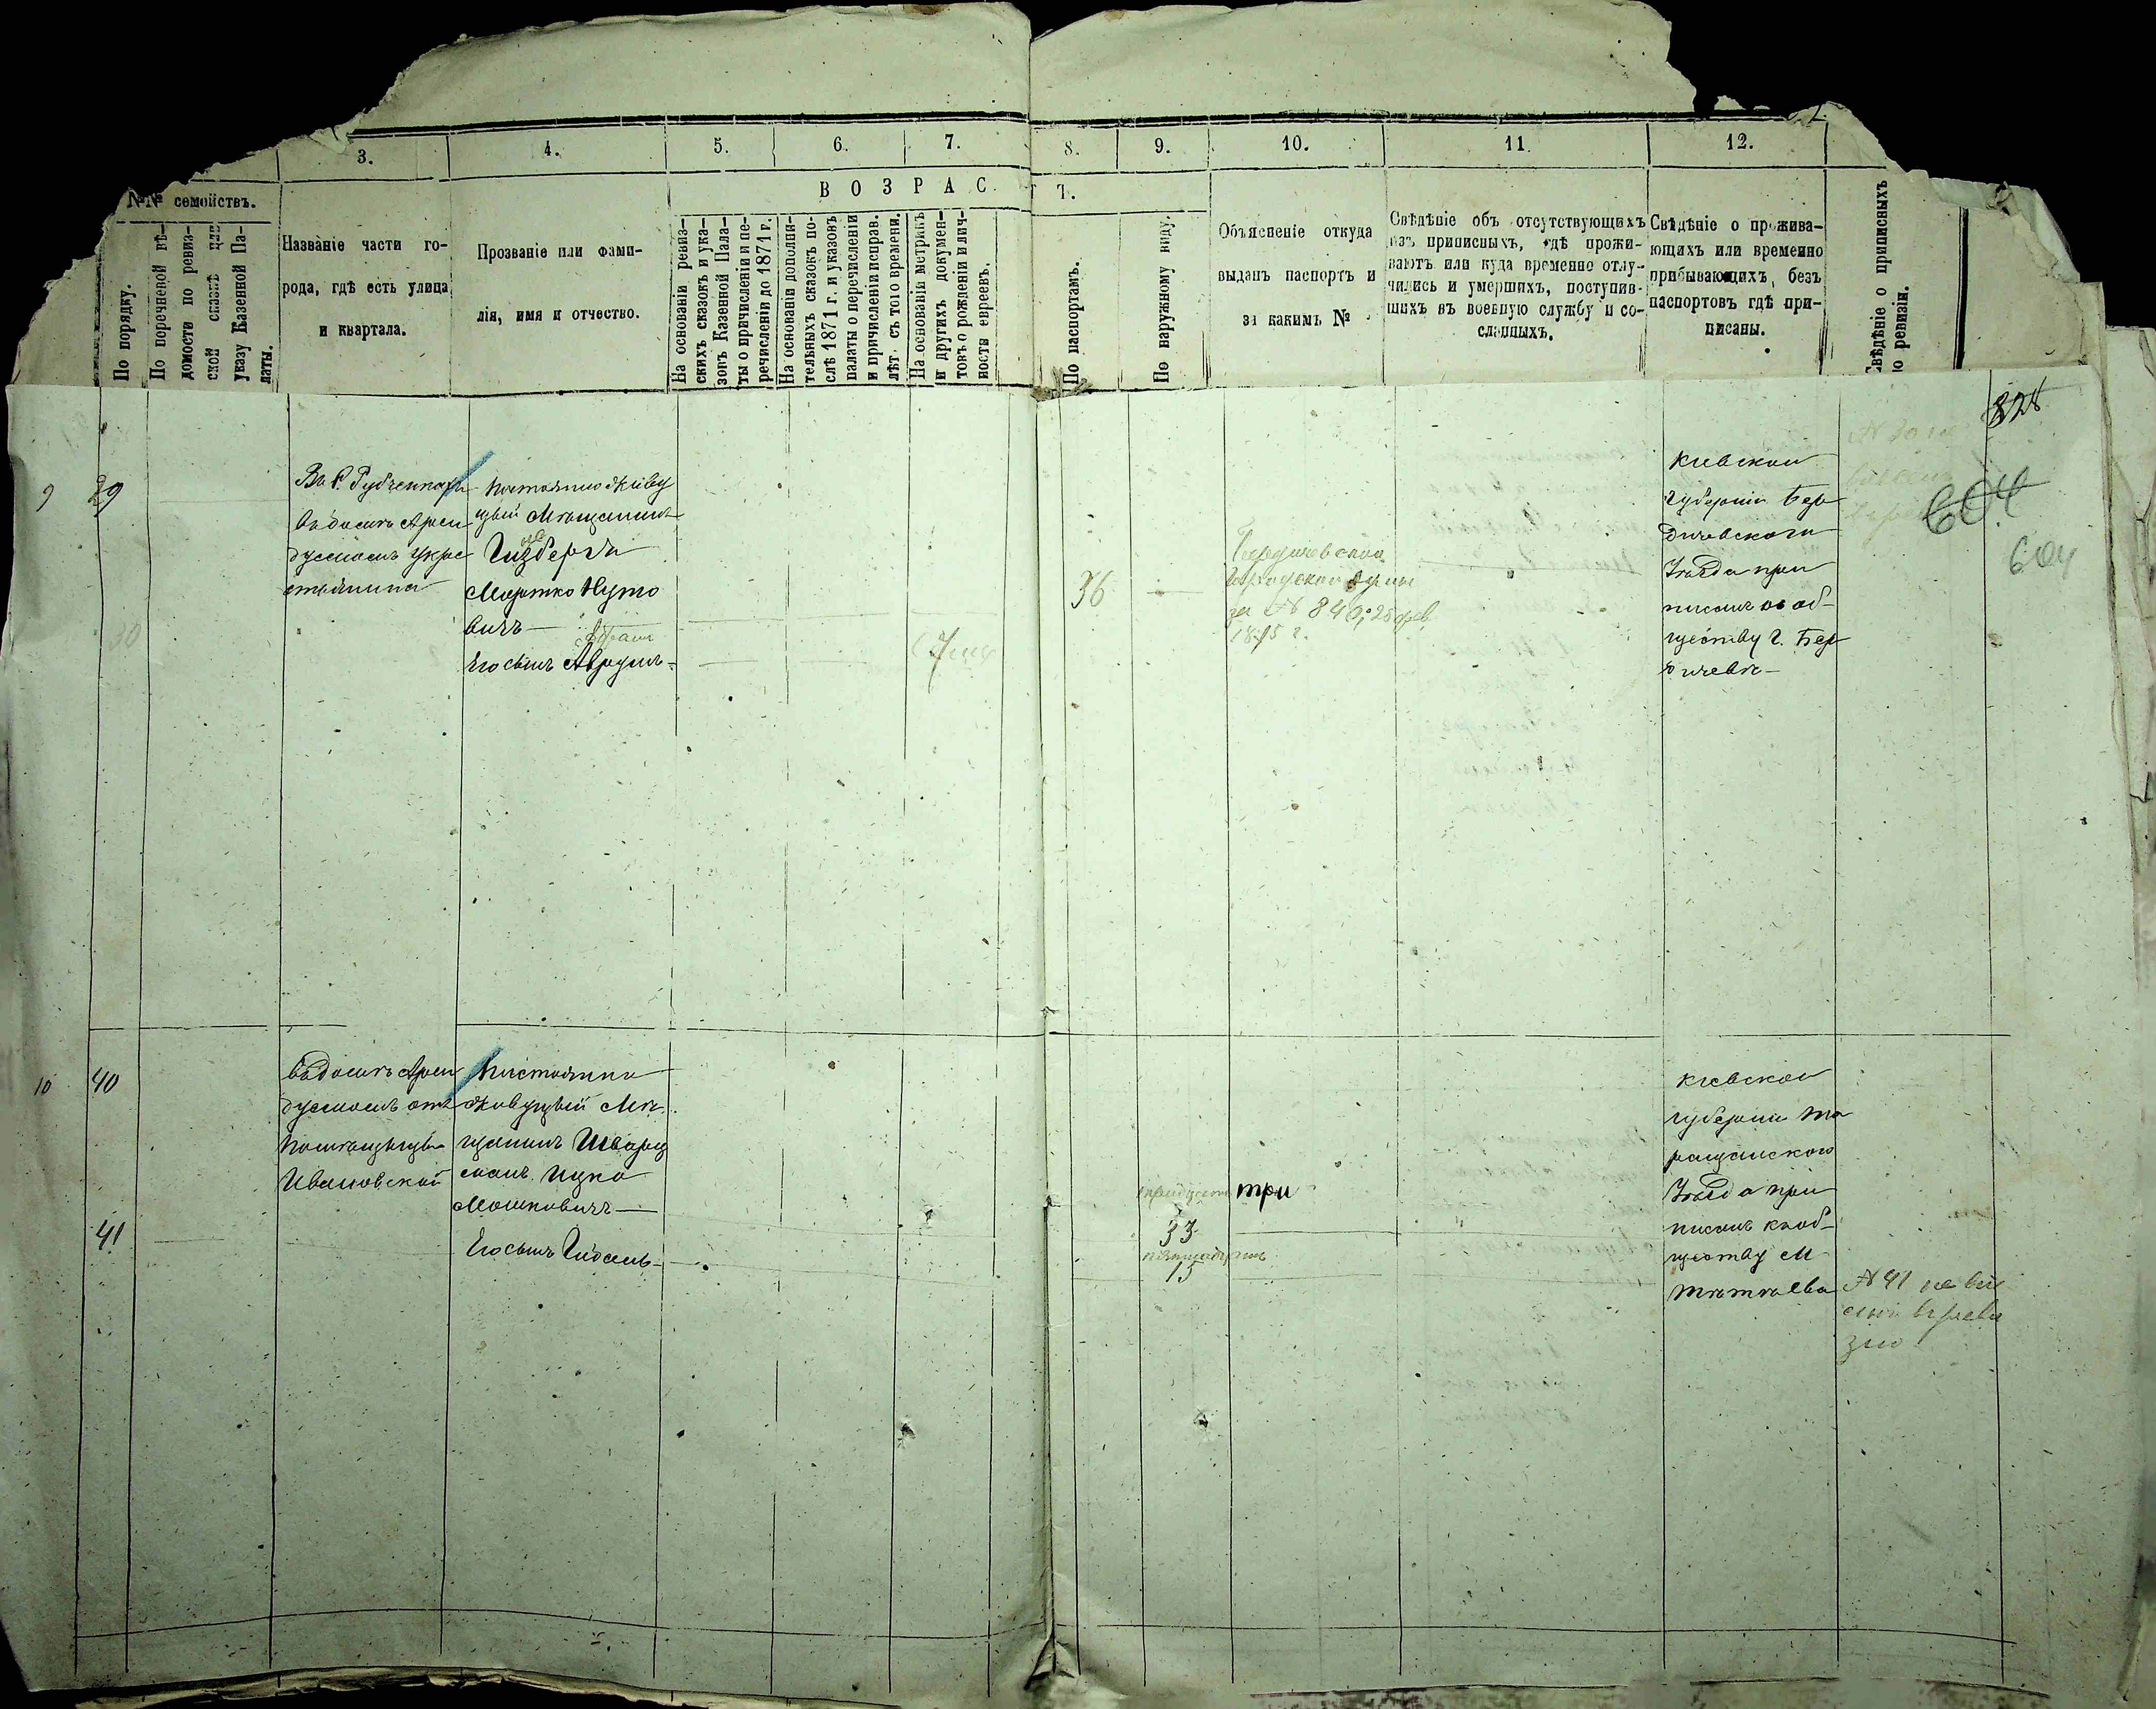 3.
4.
5.
6.
7.
8.
9.
10.
11.
12.
№№ семействъ.
По порядку.
По перечневой вѣ-
домости по ревиз-
ской сказкѣ или
указу Казенной Па-
латы.
Названіе части го-
рода, гдѣ есть улица
и квартала.
Прозваніе или фами-
лія, имя и отчество.
ВОЗРАС
Т.
На основаніи ревиз-
скихъ сказокъ и ука-
зовъ Казенной Пала-
ты о причисленіи и пе-
речисленіи до 1871 г.
На основаніи дополни-
тельныхъ сказокъ по-
слѣ 1871 г. и указовъ
палаты о перечисленіи
и причисленіи исправ.
лѣт. съ того времени.
На основаніи метрикъ
и другихъ докумен-
товъ о рожденіи и лич-
ности евреевъ.
По паспортамъ.
По наружному виду.
Объясненіе откуда
выданъ паспортъ и
за какимъ №
Свѣдѣніе объ отсутствующихъ
изъ приписныхъ, гдѣ прожи-
ваютъ или куда временно отлу-
чились и умершихъ, поступив-
шихъ въ военную службу и со-
сланныхъ.
Свѣдѣніе о прожива-
ющихъ или временно
прибывающихъ, безъ
паспортовъ гдѣ при-
писаны.
Свѣдѣніе о приписныхъ
по ревизіи.
828
604
604
9
29
30
Въ с. Рубченкахъ
въ домѣ Арен
дуемомъ у кре
стьянина
Постоянно живу
щій Мѣщанинъ
Гизбергъ
Мортко Нуто
вичъ
Его сынъ Аврумъ
7
36
Бердичевской
Городской Думы
за № 840, 25 фев
1875 г.
Кіевской
губерніи Бер
дичевскаго
Уѣзда при
писанъ къ об-
ществу г. Бер
дичева
10
40
41
въ домѣ Арен
дуемомъ отъ
помѣщицы
Ивановской
Постоянно
живущій Мѣ
щанинъ Шварц
манъ Ицко
Мошковичъ
Его сынъ Гидаль
тридцать три
33
пятнадцать
15
Кіевской
губерніи Та
ращанского
Уѣзда при
писанъ къ об-
ществу М
Тетіева
№ 41 не вне
сенъ въ реви
зію